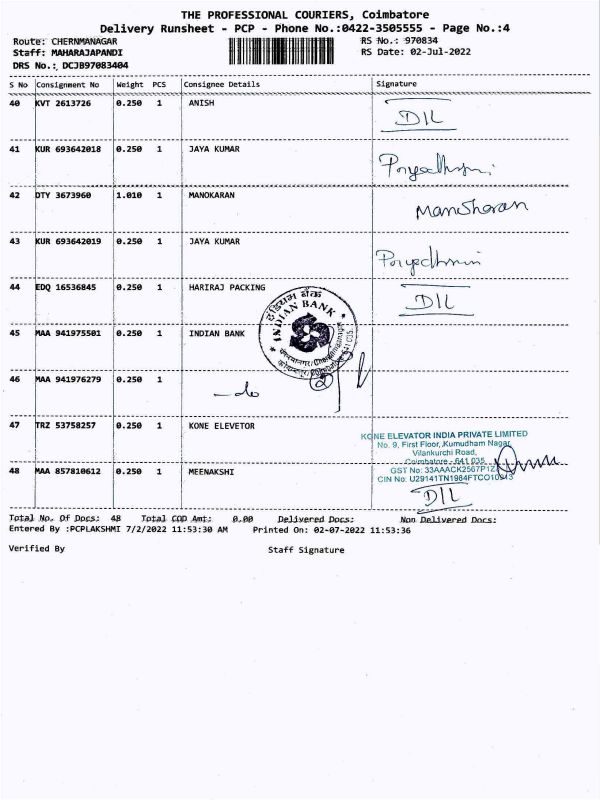 THE PROFESSIONAL COURIERS, Coimbatore
Delivery Runsheet - PCP - Phone No.:0422-3505555 - Page No.:4
Route: CHERNMANAGAR RS No.: 970834
Staff: MAHARAJAPANDI RS Date: 02-Jul-2022
DRS No.: DCJB97083404
S No Consignment No Weight PCS Consignee Details Signature
40 KVT 2613726 0.250 1 ANISH DIL
41 KUR 693642018 0.250 1 JAYA KUMAR
42 DTY 3673960 1.010 1 MANOKARAN Manoharan
43 KUR 693642019 0.250 1 JAYA KUMAR
44 EDQ 16536845 0.250 1 HARIRAJ PACKING DIL
इंडियन बैंक
INDIAN BANK
45 MAA 941975501 0.250 1 INDIAN BANK
46 MAA 941976279 0.250 1 -do 2
47 TRZ 53758257 0.250 1 KONE ELEVETOR
KONE ELEVATOR INDIA PRIVATE LIMITED
No. 9, First Floor, Kumudham Nagar,
Vilankurchi Road,
Coimbatore - 641 035.
GST No: 33AAACK2567P1Z
CIN No: U29141TN1984FTCO10913
48 MAA 857810612 0.250 1 MEENAKSHI DIL
Total No. Of Docs: 48 Total COD Amt: 0.00 Delivered Docs: Non Delivered Docs:
Entered By :PCPLAKSHMI 7/2/2022 11:53:30 AM Printed On: 02-07-2022 11:53:36
Verified By Staff Signature